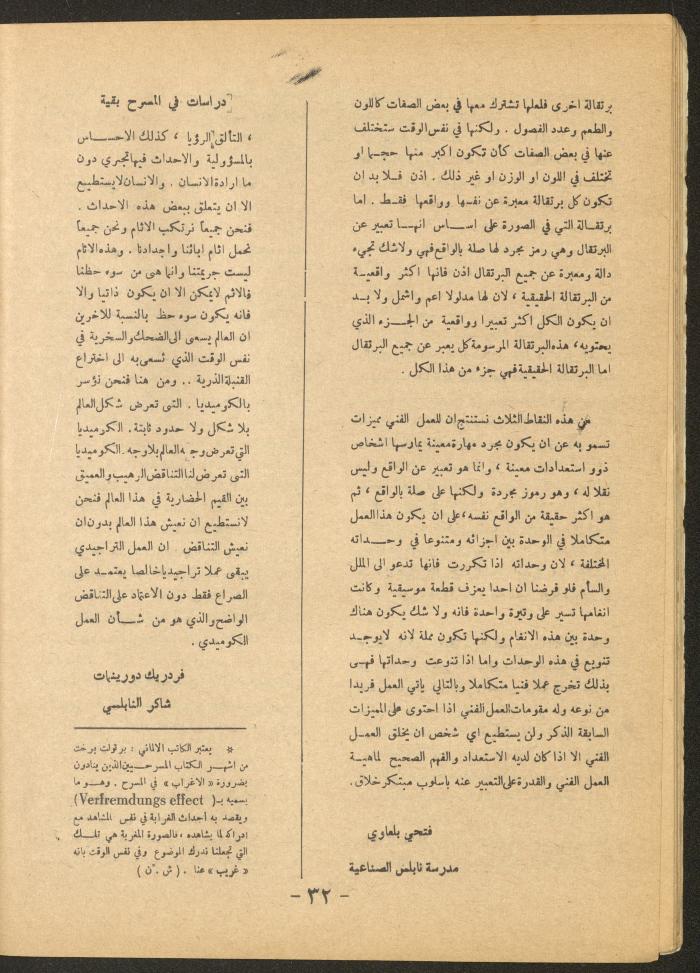 برتقالة اخرى فلعلها تشترك معها في بعض الصفات كاللون
والطعم وعدد الفصول . ولكنها في نفس الوقت ستختلف
عنها في بعض الصفات كأن تكون اكبر منها حجما او
تختلف في اللون او الوزن او غير ذلك . اذن فلا بد ان
تكون كل برتقالة معبرة عن نفسها وواقعها فقط . اما
برتقالة التي في الصورة على اساس انها تعبير عن
البرتقال وهي رمز مجرد لها صلة بالواقع فهي ولاشك تجيء
دالة ومعبرة عن جميع البرتقال اذن فانها اكثر واقعية
من البرتقالة الحقيقية ، لان لها مدلولا اعم واشمل ولا بد
ان يكون الكل اكثر تعبيرا وواقعية من الجزء الذي
يحتويه ، هذه البرتقالة المرسومة كل يعبر عن جميع البرتقال
اما البرتقالة الحقيقية فهي جزء من هذا الكل .
من هذه النقاط الثلاث نستنتج ان للعمل الفني مميزات
تسمو به عن ان يكون مجرد مهارة معينة يمارسها اشخاص
ذوو استعدادات معينة ، وانما هو تعبير عن الواقع وليس
نقلا له ، وهو رموز مجردة ولكنها على صلة بالواقع ، ثم
هو اكثر حقيقة من الواقع نفسه ، على ان يكون هذا العمل
متكاملا في الوحدة بين اجزائه ومتنوعا في وحداته
المختلفة ، لان وحداته اذا تكررت فانها تدعو الى الملل
والسأم فلو فرضنا ان احدا يعزف قطعة موسيقية وكانت
انغامها تسير على وتيرة واحدة فانه ولا شك يكون هناك
وحدة بين هذه الانغام ولكنها تكون مملة لانه لايوجد
تنويع في هذه الوحدات واما اذا تنوعت وحداتها فهي
بذلك تخرج عملا فنيا متكاملا وبالتالي يأتي العمل فريدا
من نوعه وله مقومات العمل الفني اذا احتوى على المميزات
السابقة الذكر ولن يستطيع اي شخص ان يخلق العمل
الفني الا اذا كان لديه الاستعداد والفهم الصحيح لماهية
العمل الفني والقدرة على التعبير عنه باسلوب مبتكر خلاق.
فتحي بلعاوي
مدرسة نابلس الصناعية
دراسات في المسرح بقية
، التألق الرؤيا ، كذلك الاحساس
بالمسؤولية والاحداث فيها تجري دون
ما ارادة الانسان . والانسان لايستطيع
الا ان يتعلق ببعض هذه الاحداث .
فنحن جميعاً نرتكب الاثام ونحن جميعاً
نحمل اثام ابائنا واجدادنا . وهذه الاثام
ليست جريمتنا وانما هى من سوء حظنا
فالاثم لايمكن الا ان يكون ذاتيا والا
فانه يكون سوء حظ بالنسبة للاخرين
ان العالم يسعى الى الضحك والسخرية في
نفس الوقت الذي تسعى به الى اختراع
القنبلة الذرية .. ومن هنا فنحن نؤسر
بالكوميديا . التى تعرض شكل العالم
بلا شكل ولا حدود ثابتة . الكوميديا
التي تعرض وجه العالم بلا وجه . الكوميديا
التى تعرض لنا التناقض الرهيب والعميق
بين القيم الحضارية في هذا العالم فنحن
لانستطيع ان نعيش هذا العالم بدون ان
نعيش التناقض ان العمل التراجيدي
يبقى عملا تراجيديا خالصا يعتمد على
الصراع فقط دون الاعتماد على التناقض
الواضح والذي هو من شأن العمل
الكوميدي .
فردريك دورينمات
شاكر النابلسي
* يعتبر الكاتب الالماني : برتولت برخت
من اشهر الكتاب المسرحيين الذين ينادون
بضرورة « الاغراب » في المسرح . وهو ما
يسميه بـ ( Verfremdungs effect)
ويقصد به أحداث الغرابة في نفس المشاهد مع
ادراكه لما يشاهده ، فالصورة المغربة هي تلك
التي تجعلنا ندرك الموضوع وفي نفس الوقت بانه
« غريب » عنا . ( ش . ن )
- ٣٢ -